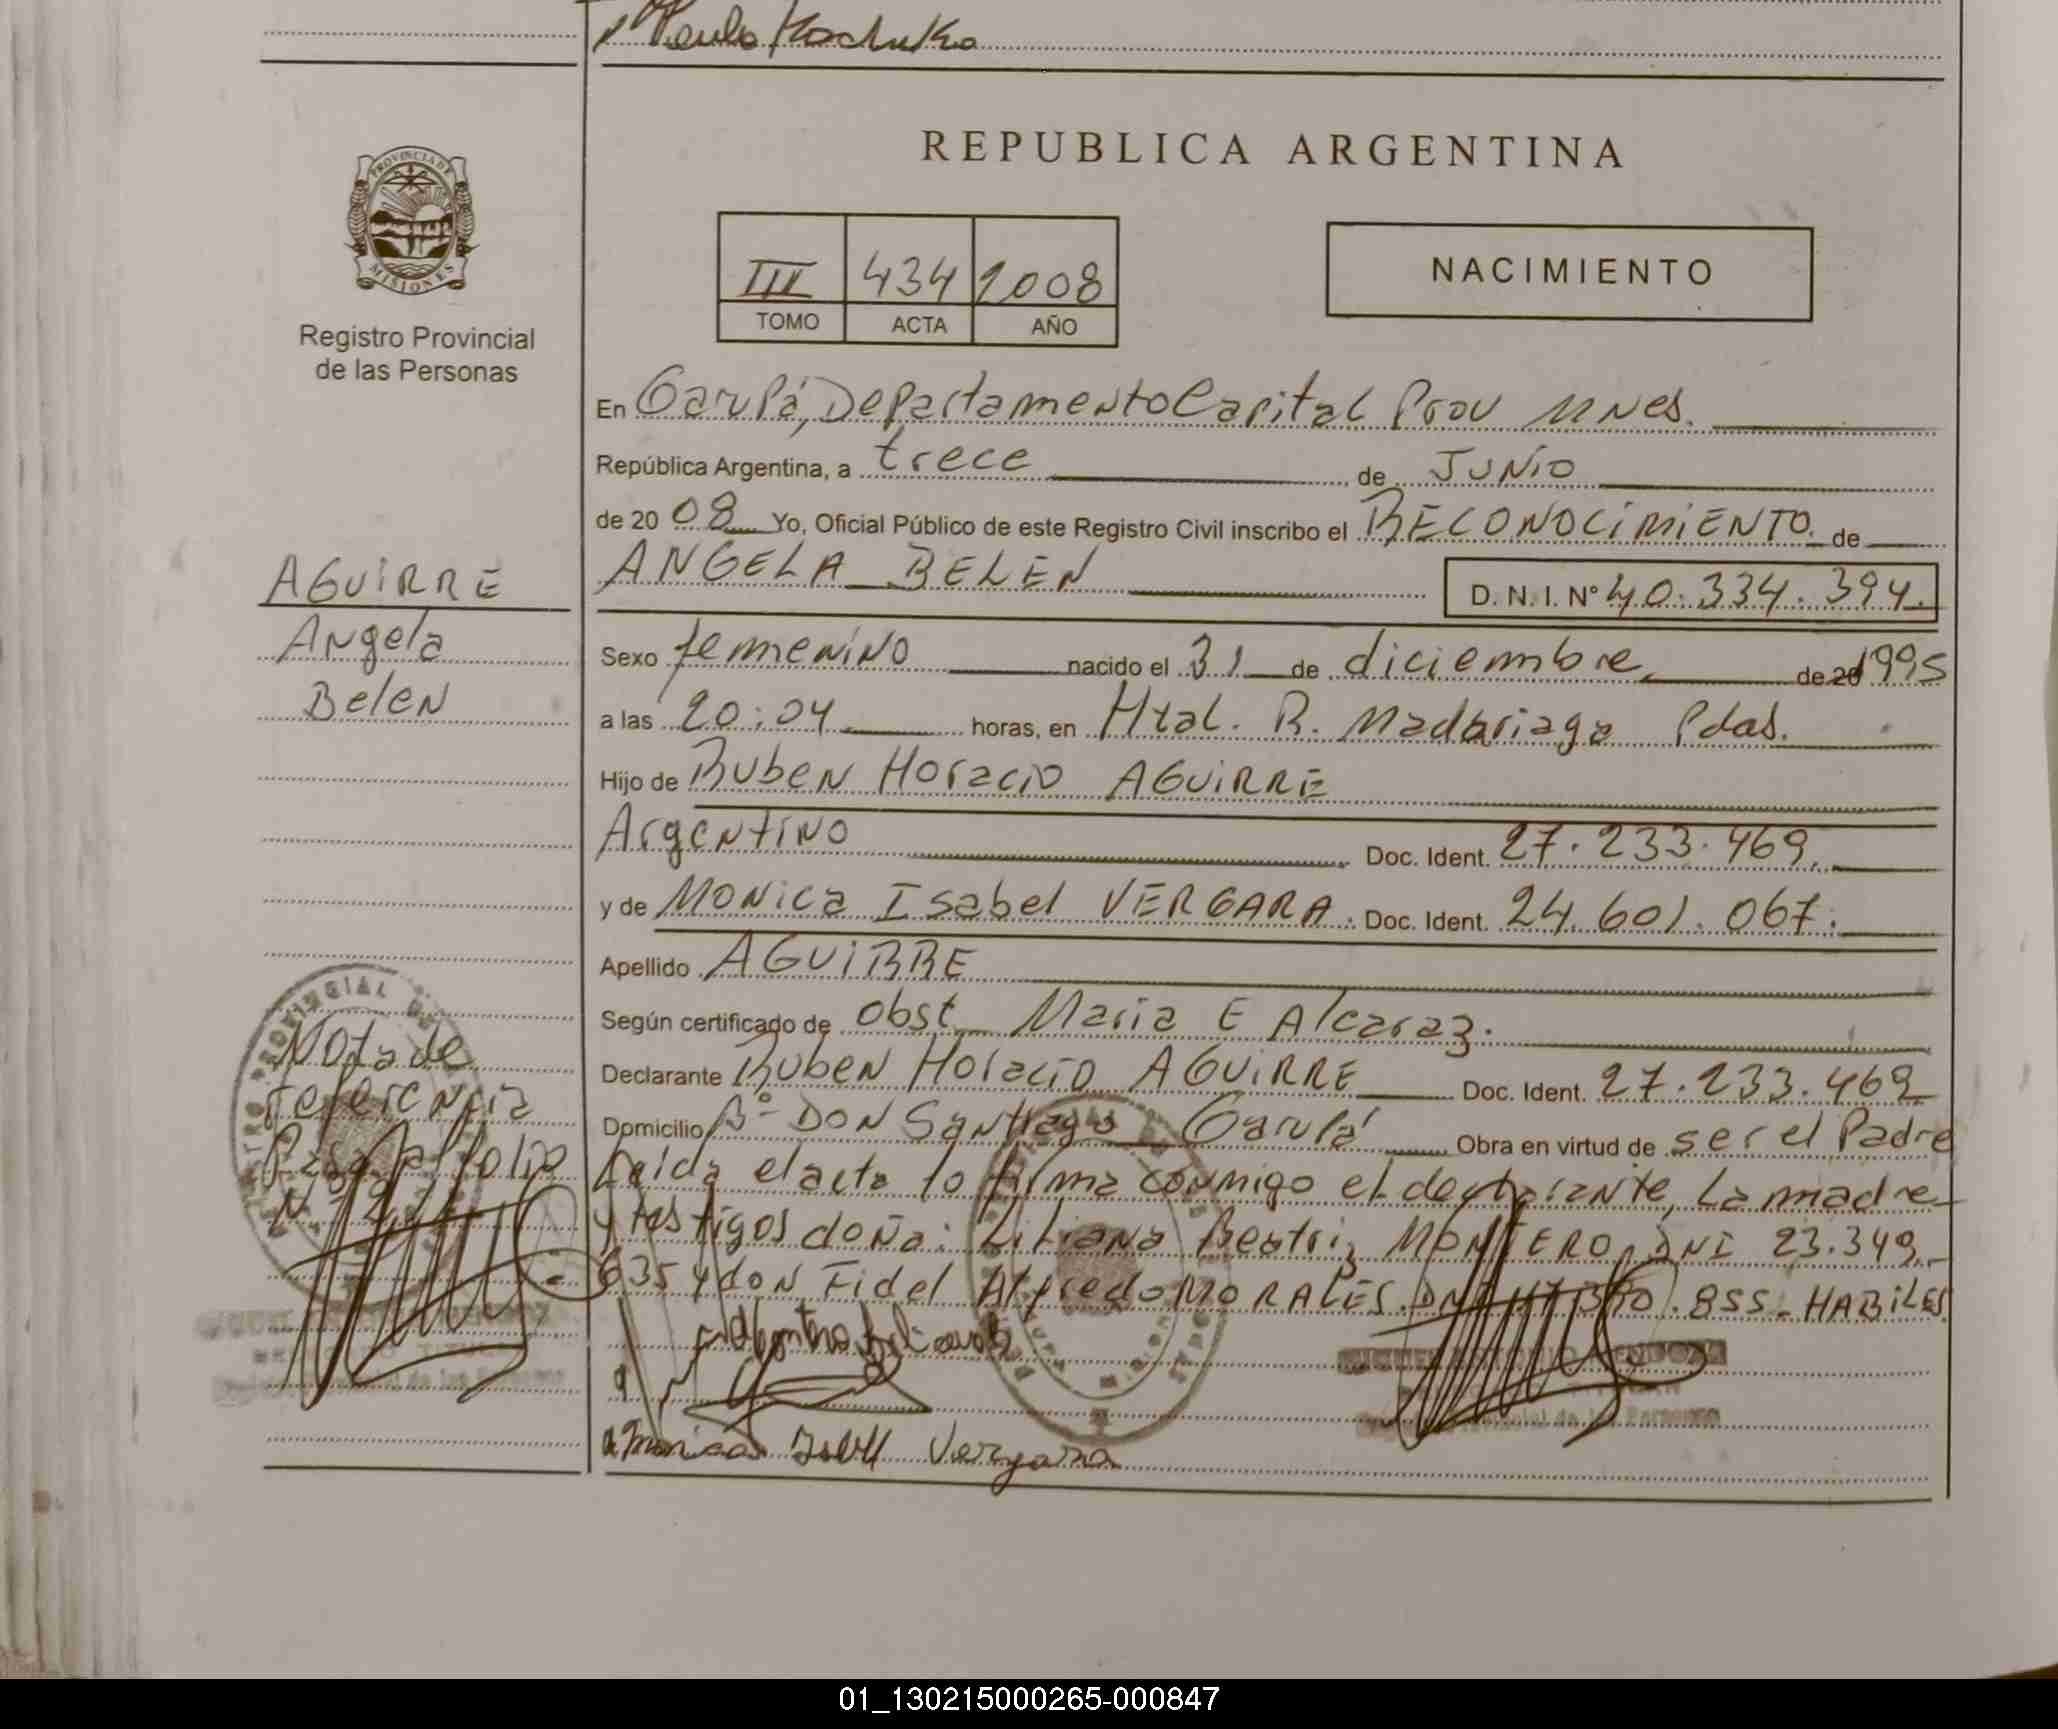 REPUBLICA ARGENTINA
PROVINCIA DE
MISIONES
Registro Provincial
de las Personas
III 434 2008
TOMO ACTA AÑO
NACIMIENTO
En Garupá, Departamento Capital Prov Mnes.
República Argentina, a trece de JUNIO
de 20 08 Yo, Oficial Público de este Registro Civil inscribo el RECONOCIMIENTO de
ANGELA BELEN D. N. I. N° 40.334.394.
AGUIRRE
Angela
Belen
Sexo femenino nacido el 31 de diciembre de 20 1995
a las 20:04 horas, en Htal. R. Madariaga Pdas.
Hijo de Ruben Horacio AGUIRRE
Argentino Doc. Ident. 27.233.469.
y de MONica Isabel VERGARA. Doc. Ident. 24.601.067.
Apellido AGUIRRE
Según certificado de obst Maria E Alcaraz.
Declarante Ruben Horacio AGUIRRE Doc. Ident. 27.233.469
Domicilio B° DON Santiago Garupá Obra en virtud de ser el Padre
Leida el acta lo firma conmigo el declarante, La madre
y testigos doña: Liliana Beatriz MONTERO DNI 23.349.-
635 y don Fidel Alfredo MORALES. DNI .855 - HABILES
Nota de
referencia
Pasa al folio
Monica Isabel Vergara
01_130215000265-000847